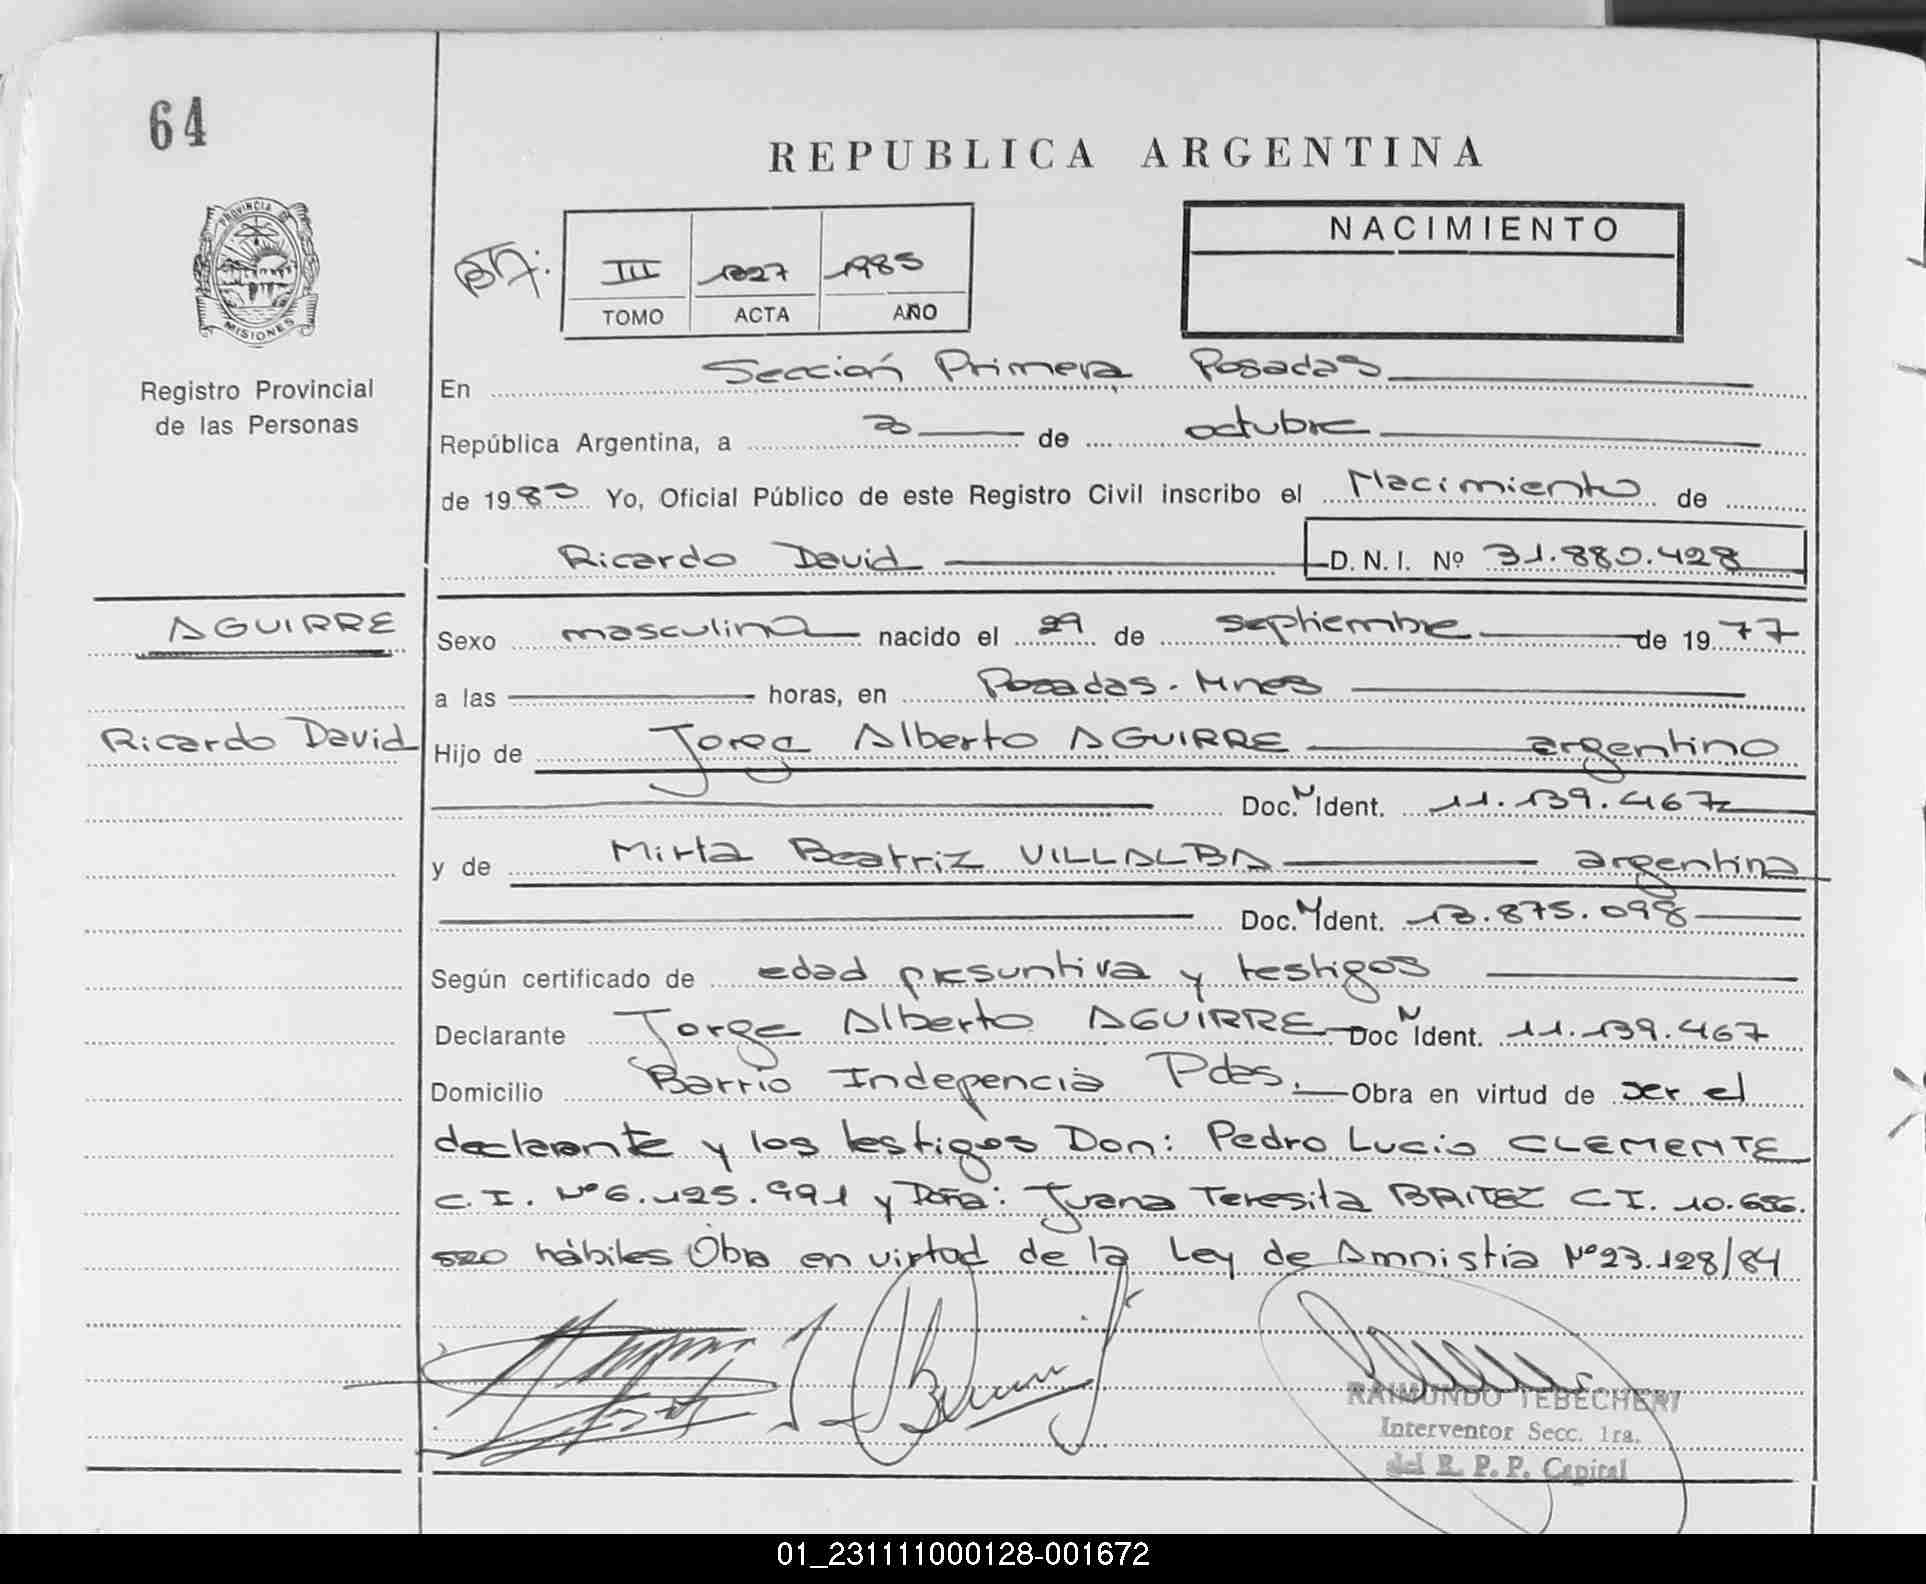 64
REPUBLICA ARGENTINA
PROVINCIA DE
MISIONES
NACIMIENTO
III 1985
TOMO ACTA AÑO
Registro Provincial
de las Personas
En Sección Primera Posadas
República Argentina, a de octubre
de 1985 Yo, Oficial Público de este Registro Civil inscribo el Nacimiento de
Ricardo David D.N.I. Nº 31.880.428
AGUIRRE
Sexo masculino nacido el 29 de septiembre de 1977
a las horas, en Posadas. Mnes
Ricardo David
Hijo de Jorge Alberto AGUIRRE argentino
Doc. N Ident. 11.139.467
y de Mirta Beatriz VILLALBA argentina
Doc. N Ident. 13.875.098
Según certificado de edad presuntiva y testigos
Declarante Jorge Alberto AGUIRRE Doc N Ident. 11.139.467
Domicilio Barrio Indepencia Pdas. Obra en virtud de ser el
declarante y los testigos Don: Pedro Lucio CLEMENTE
C.I. Nº 6.425.991 y Doña: Juana Teresita BRITEZ C.I. 10.656.
520 hábiles Obra en virtud de la Ley de Amnistia Nº 23.128/84
RAIMUNDO TEBECHERI
Interventor Secc. 1ra.
del R. P. P. Capital
01_231111000128-001672